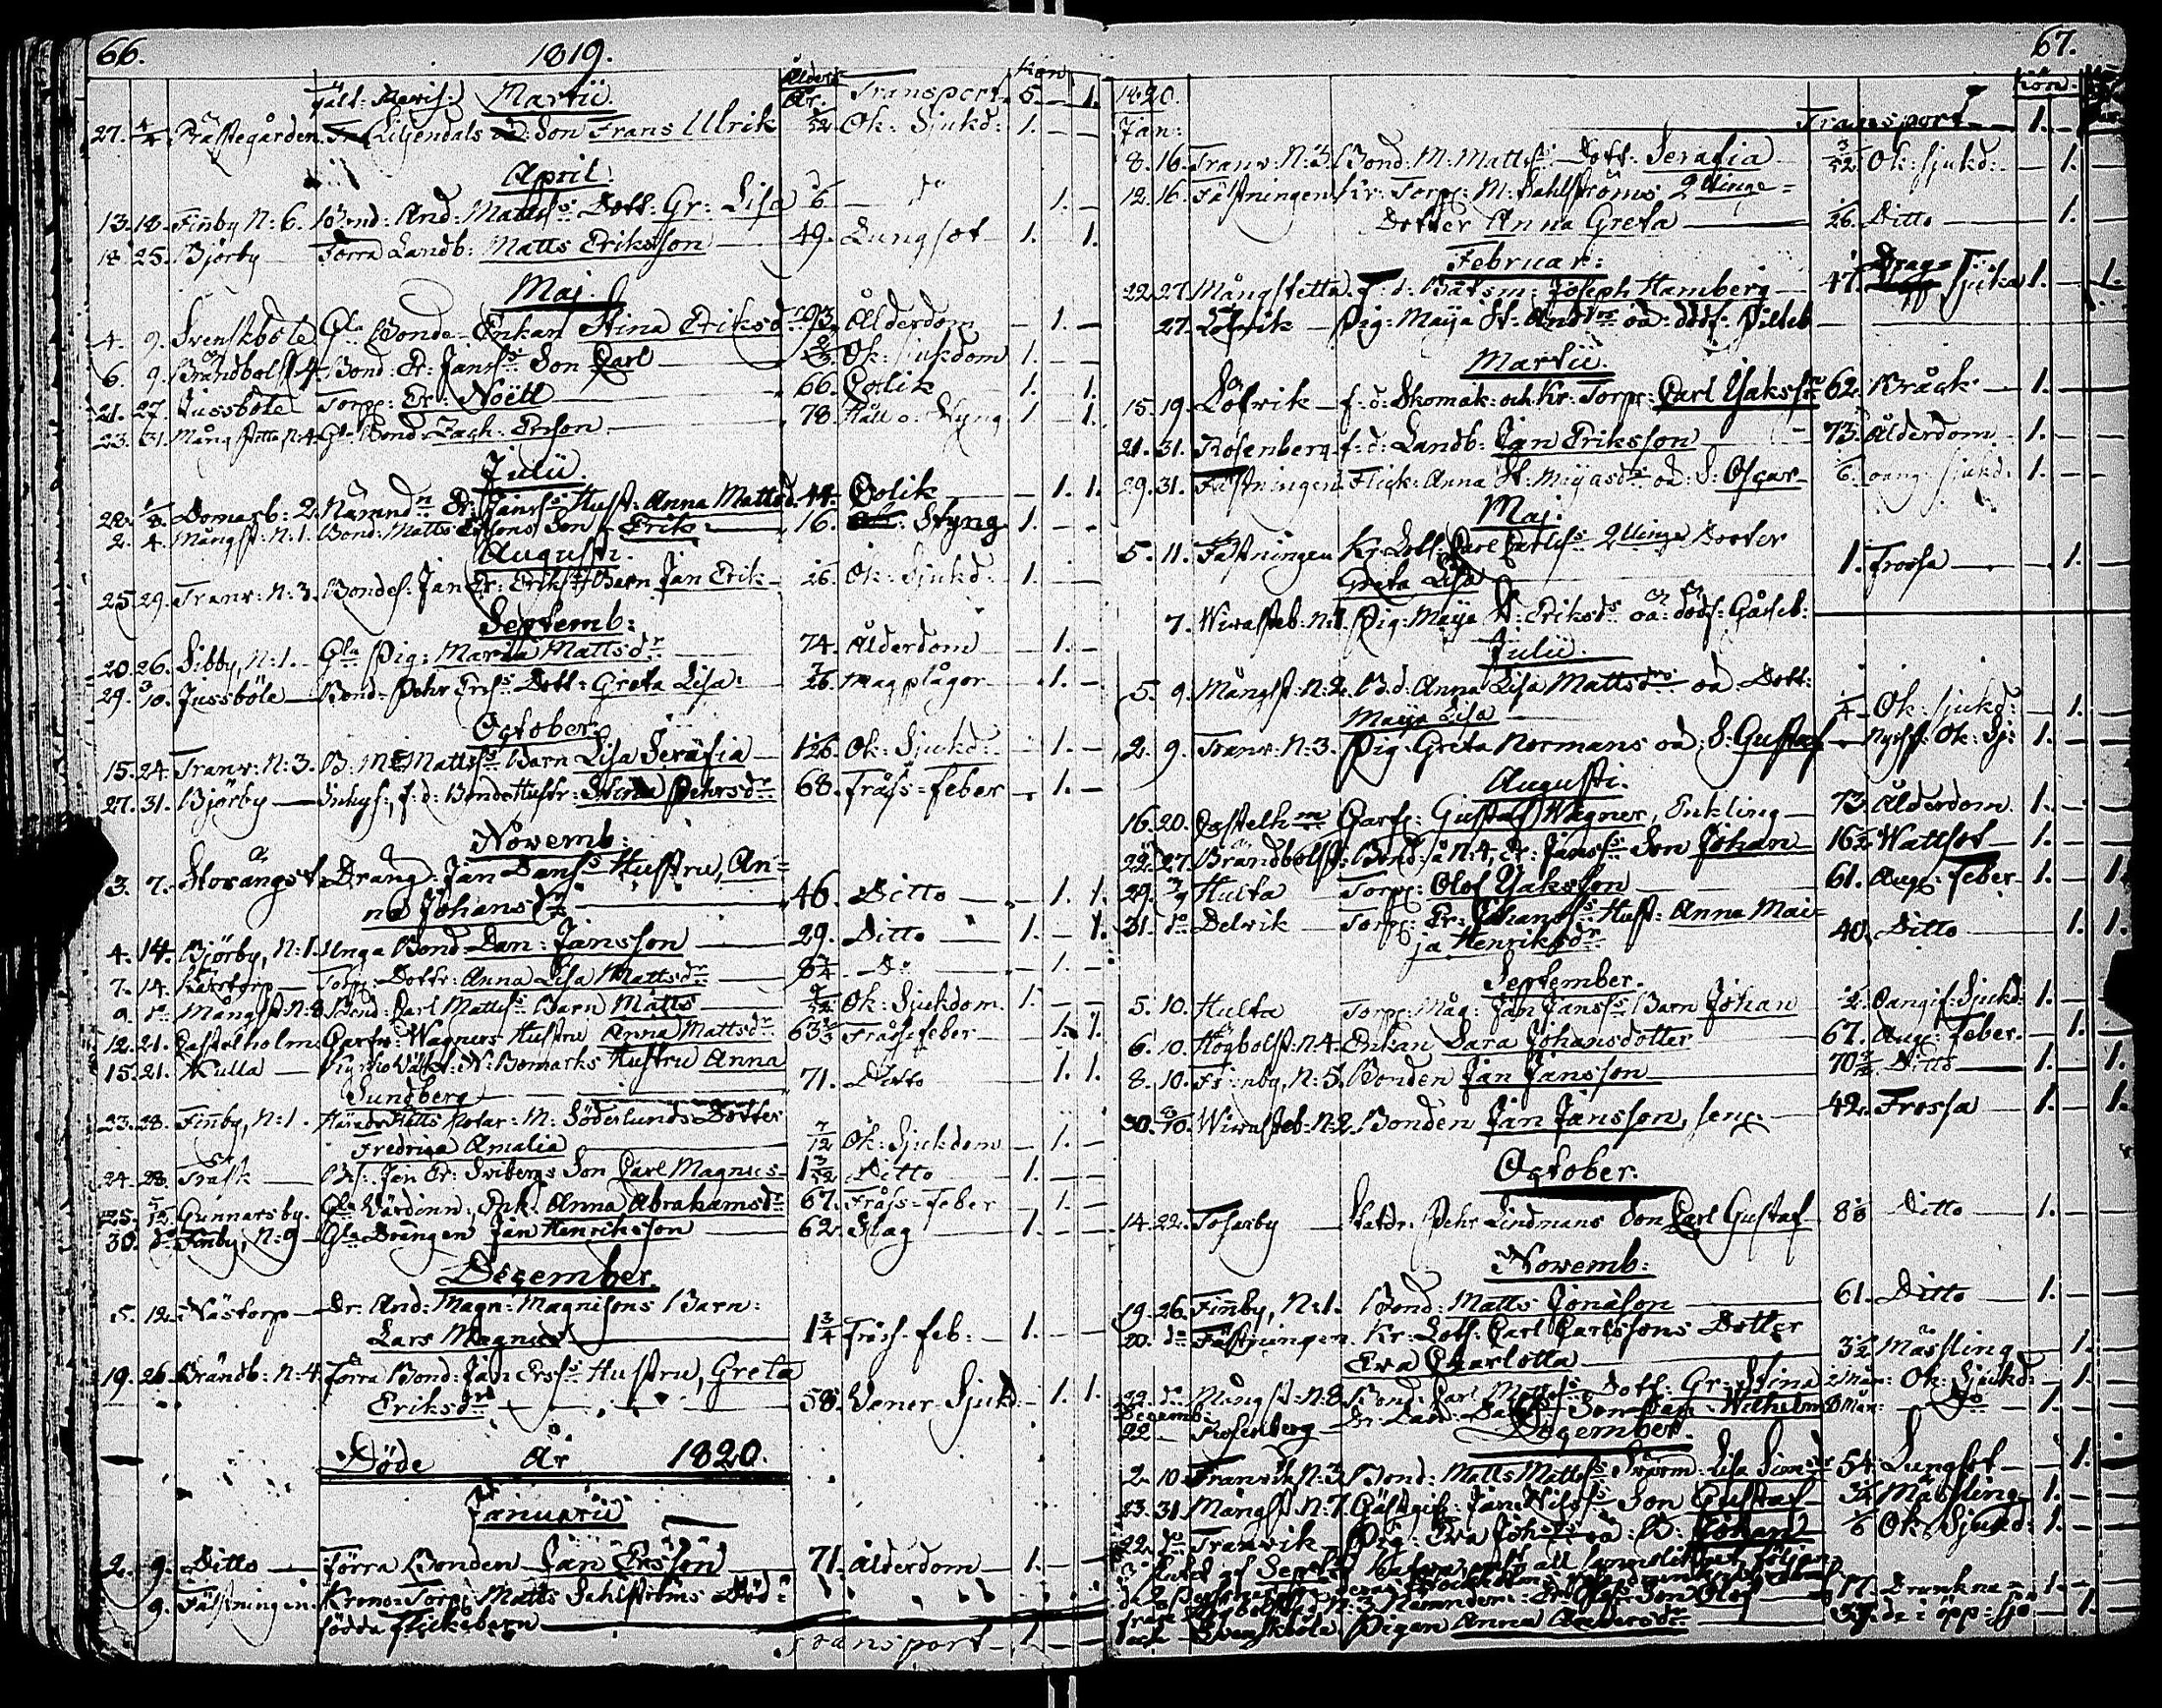 66. 1819.
Ålder Kön
Martii. År. Transport. 5. — 1.
27. 4/4 Prästegården Liljendals oä: Son Frans Ulrik /52 Ok: Sjukd: 1. —
April.
13. 18. Finby N: 6. Bond: And: Mattss: Dott: Gr: Lisa 6 d:o 1. —
18 25. Björby Förra Landb: Matts Eriksson 49. Lungsot 1. 1.
Maj.
4. 9. Svenskböle Gla Bonde-Enkan Stina Eriksdr 93 Ålderdom — 1. —
6. 9. Brändbolst. 4. Bond: Er: Janss: Son Carl Ok: Sjukdom 1. —
21. 27. Jussböle Torp: Er: Noëll 66. Colik 1. 1.
23. 31. Mångstetta N:4 Gla Bond: Zach: Erson 78. Håll o. Styng 1 1.
Julii
28. Domarb: 2. Nämnd:n Er: Janss: Hust: Anna Mattsd. 44. Colik — 1. 1.
2. 4. Mångst: N: 1. Bond: Matts Ersons Son Erik 16. Styng 1. —
Augusti.
25 29. Tranv: N: 3. Bondes. Jan Er: Erikss: Barn Jan Erik /26. Ok: Sjukd: 1. —
Septemb:
20. 26. Sibby, N: 1. Gla Pig: Maria Mattsdr 74. Ålderdom — 1. —
29. 3/10. Jussböle Bond: Pehr Erss: Dott: Greta Lisa: /26 Magplågor — 1. —
October.
15. 24. Tranv: N: 3. B: M: Mattss: Barn Lisa Serafia 1/26. Ok: Sjukd: — 1. —
27. 31. Björby — Inhys: f: d: Bonde Hustr: Stina Pehrsdr 68. Fråss-feber — 1. —
Novemb:
3. 7. Storängst. Dräng: Jan Danss: Hustru, An-
na Johansdr 46. Ditto — 1. 1.
4. 14. Björby, N: 1. Unga Bond: Dan: Jansson 29. Ditto 1. 1.
7. 14. Torp: Dottr: Anna Lisa Mattsdr 8 3/4 D:o — 1. —
9. d:o Mångst: N: 8 Bond: Carl Mattss: Barn Matts Ok: Sjukdom. 1. —
12. 21. Castelholm Garfv: Wagners Hustru Anna Mattsdr 63 Fråssfeber — 1. 1.
15. 21. Kulla N: Bomarks Hustru Anna
Sundberg 71. Ditto 1. 1.
23. 28. Finby, N: 1. Härads Rätts Notar: M: Söderlunds Dotter
Fredrica Amalia 7/12 Ok: Sjukdom — 1. —
24. 28. Träsk — Bs: Jan Er: Svibergs Son Carl Magnus 1 3/52 Ditto 1. —
25. 5/12. Gunnarsby. Gla Värdinn: Enk: Anna Abrahamsdr 67. Fråss-feber — 1. —
30. d:o Finby, N: 9 Gla Drängen Jan Henriksson 62. Slag 1. —
December.
5. 12. Nästorp — Dr: And: Magn: Magnisons Barn:
Lars Magnus 1 3/4 Fråss-feb: — 1. —
19. 26. Brändb: N: 4. Förra Bond: Jan Erss: Hustru, Greta
Eriksdr 58. Vener: Sjukd: — 1. 1.
Döde År 1820.
Januarii
2. 9. Ditto — Förra Bonden Jan Ersson 71. Ålderdom 1. —
9. Fästningen. Krono-Torp: Matts Sahlströms Död-
födda Flickebarn
Transport — 1. —
67.
1820. Kön.
Jan: Transport — 1. —
8. 16. Tranv: N: 3. Bond: M: Mattss: Dott: Serafia 3/52 Ok: sjukd: — 1.
12. 16. Fästningen Kr: Torp: M: Sahlströms 2llinge-
Dotter Anna Greta /26. Ditto — 1.
Februar:
22. 27. Mångstetta. f: d: Båtsm: Joseph Hamberg 47. Sjuka 1. — 1.
27. Löfvik — Pig: Maija St: Andrs oä: dödf: Pilteb
Martii.
15. 19. Löfvik — f: d: Skomak: och Kr: Torp: Carl Isakss: 62. Bråck — 1. —
21. 31. Rosenberg f: d: Landb: Jan Eriksson 73. Ålderdom 1. —
29. 31. Fästningen Flick: Anna oä: S: Oscar /6. oang: sjukd: 1. —
Maj.
5. 11. Fästningen Kr: Lots: Carl Carlss: 2llinge Dotter
Greta Lisa 1. Frossa — 1.
7. Wivasteb: N: 1. Pig: Maija St: Eriksds oä: dödf: Gåsseb:
Julii.
5. 9. Mångst: N: 2. B: d: Anna Lisa Mattsdrs oä Dott:
Maija Lisa /4 Ok: sjukd: 1.
2. 9. Tranv: N: 3. Pig: Greta Normans oä: S: Gustaf — Nysf: Ok: Sj: 1. —
Augusti.
16. 20. Castelhm Garf: Gustaf Wagner, Enkling 73. Ålderdom 1. —
22. 27. Brändbolst: Bond: å N: 4, Er: Janss: Son Johan 16 1/2 Wattsot — 1. —
29. 3/9 Hulta Torp: Olof Isaksson 61. Aug: Feber 1. — 1.
31. d:o Delvik Torp: Er: Johanss: Hust: Anna Mai-
ja Henriksdr 40. Ditto — 1. 1.
September.
5. 10. Hulta Torp: Måg: Jan Janss: Barn Johan 1/2. Oangif: Sjukd: 1. —
6. 10. Högbolst: N: 4. Enkan Sara Johansdotter 67. Aug: Feber. — 1.
8. 10. Finby, N: 5. Bonden Jan Jansson 70 Ditto — 1. 1.
30. 8/10. Wivasteb: N: 2. Bonden Jan Jansson, sen: 42. Frossa — 1. — 1.
October.
14. 22. Tosarby Statdr: Pehr Lindmans Son Carl Gustaf 8 Ditto — 1. —
Novemb:
19. 26. Finby, N: 1. Bond: Matts Jonason 61. Ditto — 1. —
20. d:o Fästningen. Kr: Lots: Carl Carlssons Dotter
Eva Charlotta 3 1/2 Mässling — 1.
22. d:o Mångst: N: 8. Bond: Carl Mattss: Dott: Gr: Stina 2 Mån: Ok: Sjukd: — 1.
Decemb:
22 — Rosenberg Wilhelm Mån: D:o 1.
December.
2. 10. Tranvik N: 3. Bond: Matts Mattss: Svärm: Lisa 54. Lungsot — 1.
23. 31. Mångst: N: 7. Gästgif: Jan Nilss: Son Gustaf 3/4 Mässling 1. —
22. d:o Tranvik. Pig: Eva Johsds oä: B: Johan /6 Ok: Sjukd: 1. —
N: 3 Nämndem: Er: Olofss: Son Olof 17. Drunkna- 1. —
Svenskböle. Pigan Anna Andersdr 37. de i öpp: sjö — 1.